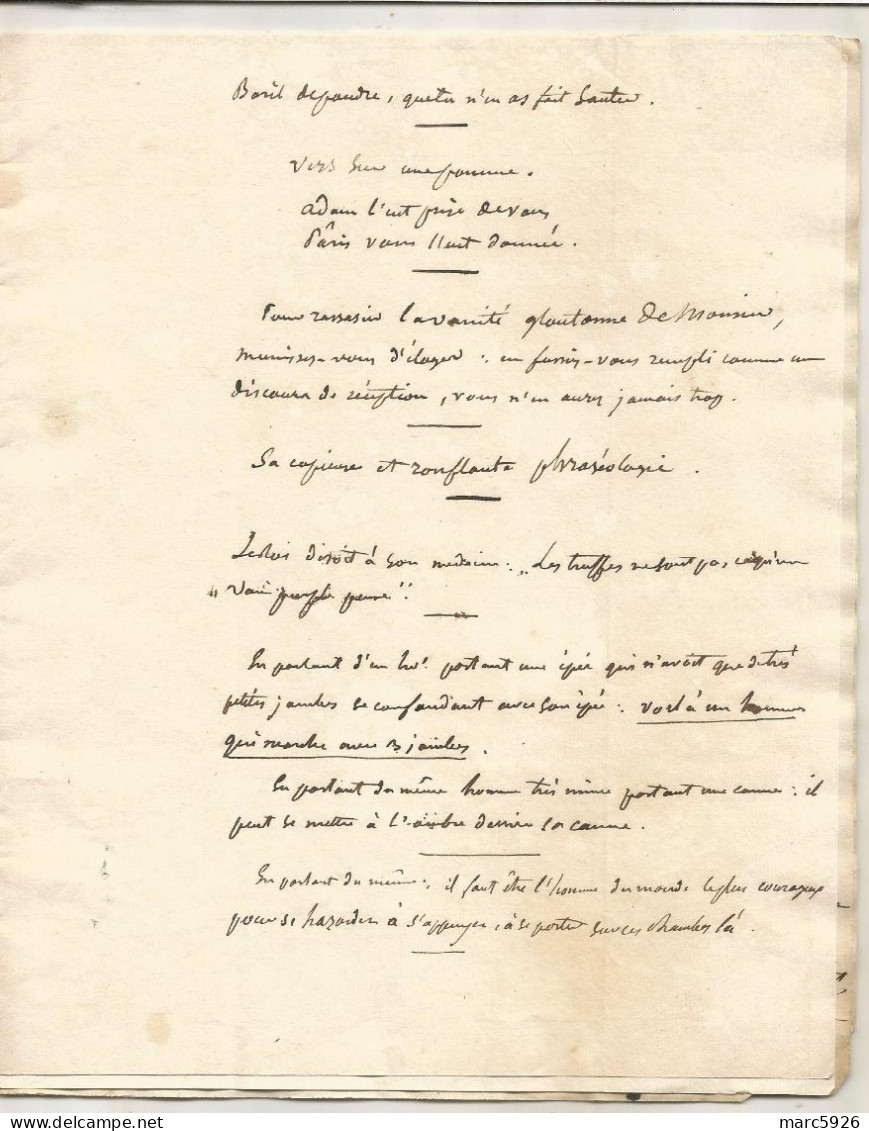 Baril de poudre, que tu n'en as fait sauter.
Vers sur une pomme.
adam l'eut prise de vous
Pâris vous l'eut donnée.
Pour rassasier la vanité gloutonne de Monsieur,
munissez-vous d'éloges : en fussiez-vous rempli comme un
discours de réception, vous n'en aurez jamais trop.
Sa copieuse et ronflante phraséologie.
disoit à son medecin : „ Les truffes ne sont pas ce qu'un
" vain peuple pense".
En parlant d'un ho.e portant une épée qui n'avoit que de très
petites jambes se confondant avec son épée : voilà un homme
qui marche avec 3 jambes.
En parlant du même homme très mince portant une canne : il
peut se mettre à l'ombre derrière sa canne.
En parlant du même : il faut être l'homme du monde le plus courageux
pour se hazarder à s'appuyer, à se porter sur ces jambes là.
marc5926